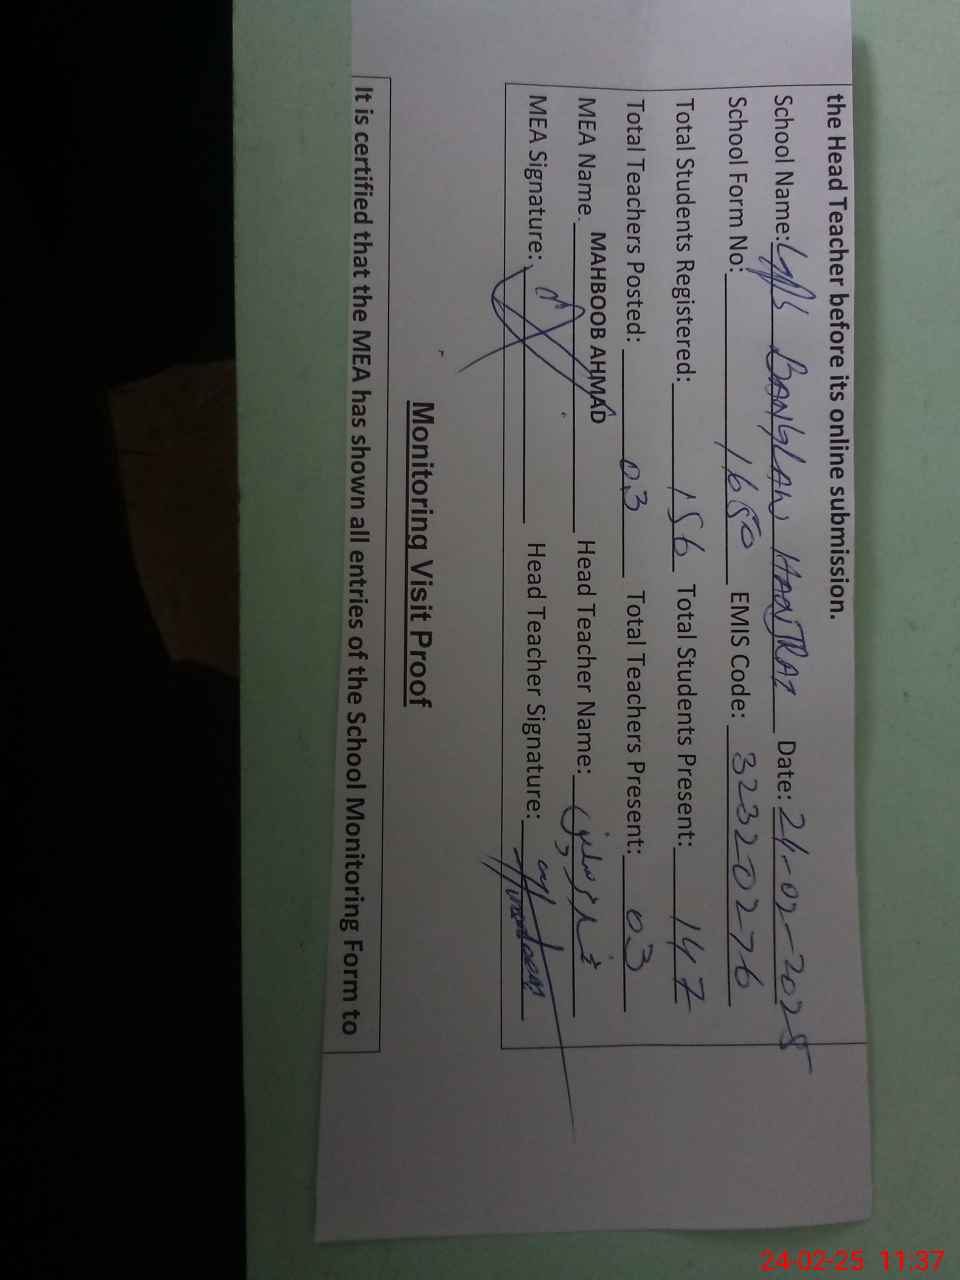 the Head Teacher before its online submission.
School Name: BANGLAW HANJRAI Date: 24-02-2025
School Form No: 1650 EMIS Code: 32320276
Total Students Registered: 156 Total Students Present: 147
Total Teachers Posted: 03 Total Teachers Present: 03
MEA Name. MAHBOOB AHMAD Head Teacher Name:
MEA Signature: Head Teacher Signature:
Monitoring Visit Proof
It is certified that the MEA has shown all entries of the School Monitoring Form to
24-02-25 11:37